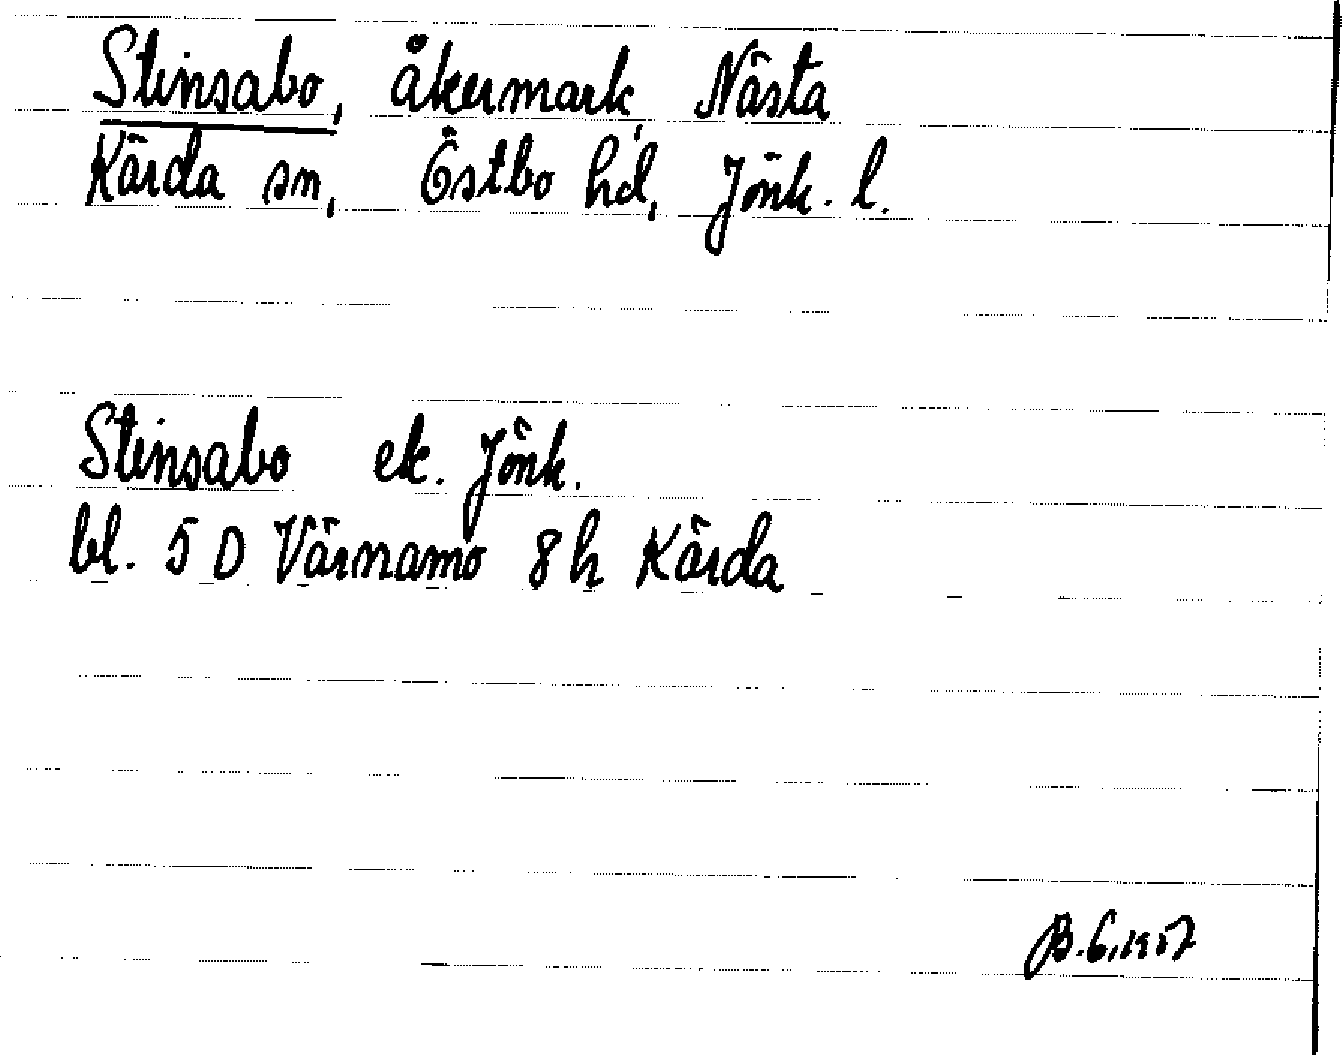 Stinsabo, åkermark, Nästa
Kärda sn, Östbo hd, Jönk. l.
Stinsabo ek. Jönk.
bl. 5 D Värnamo 8 h Kärda
B. G. 1957